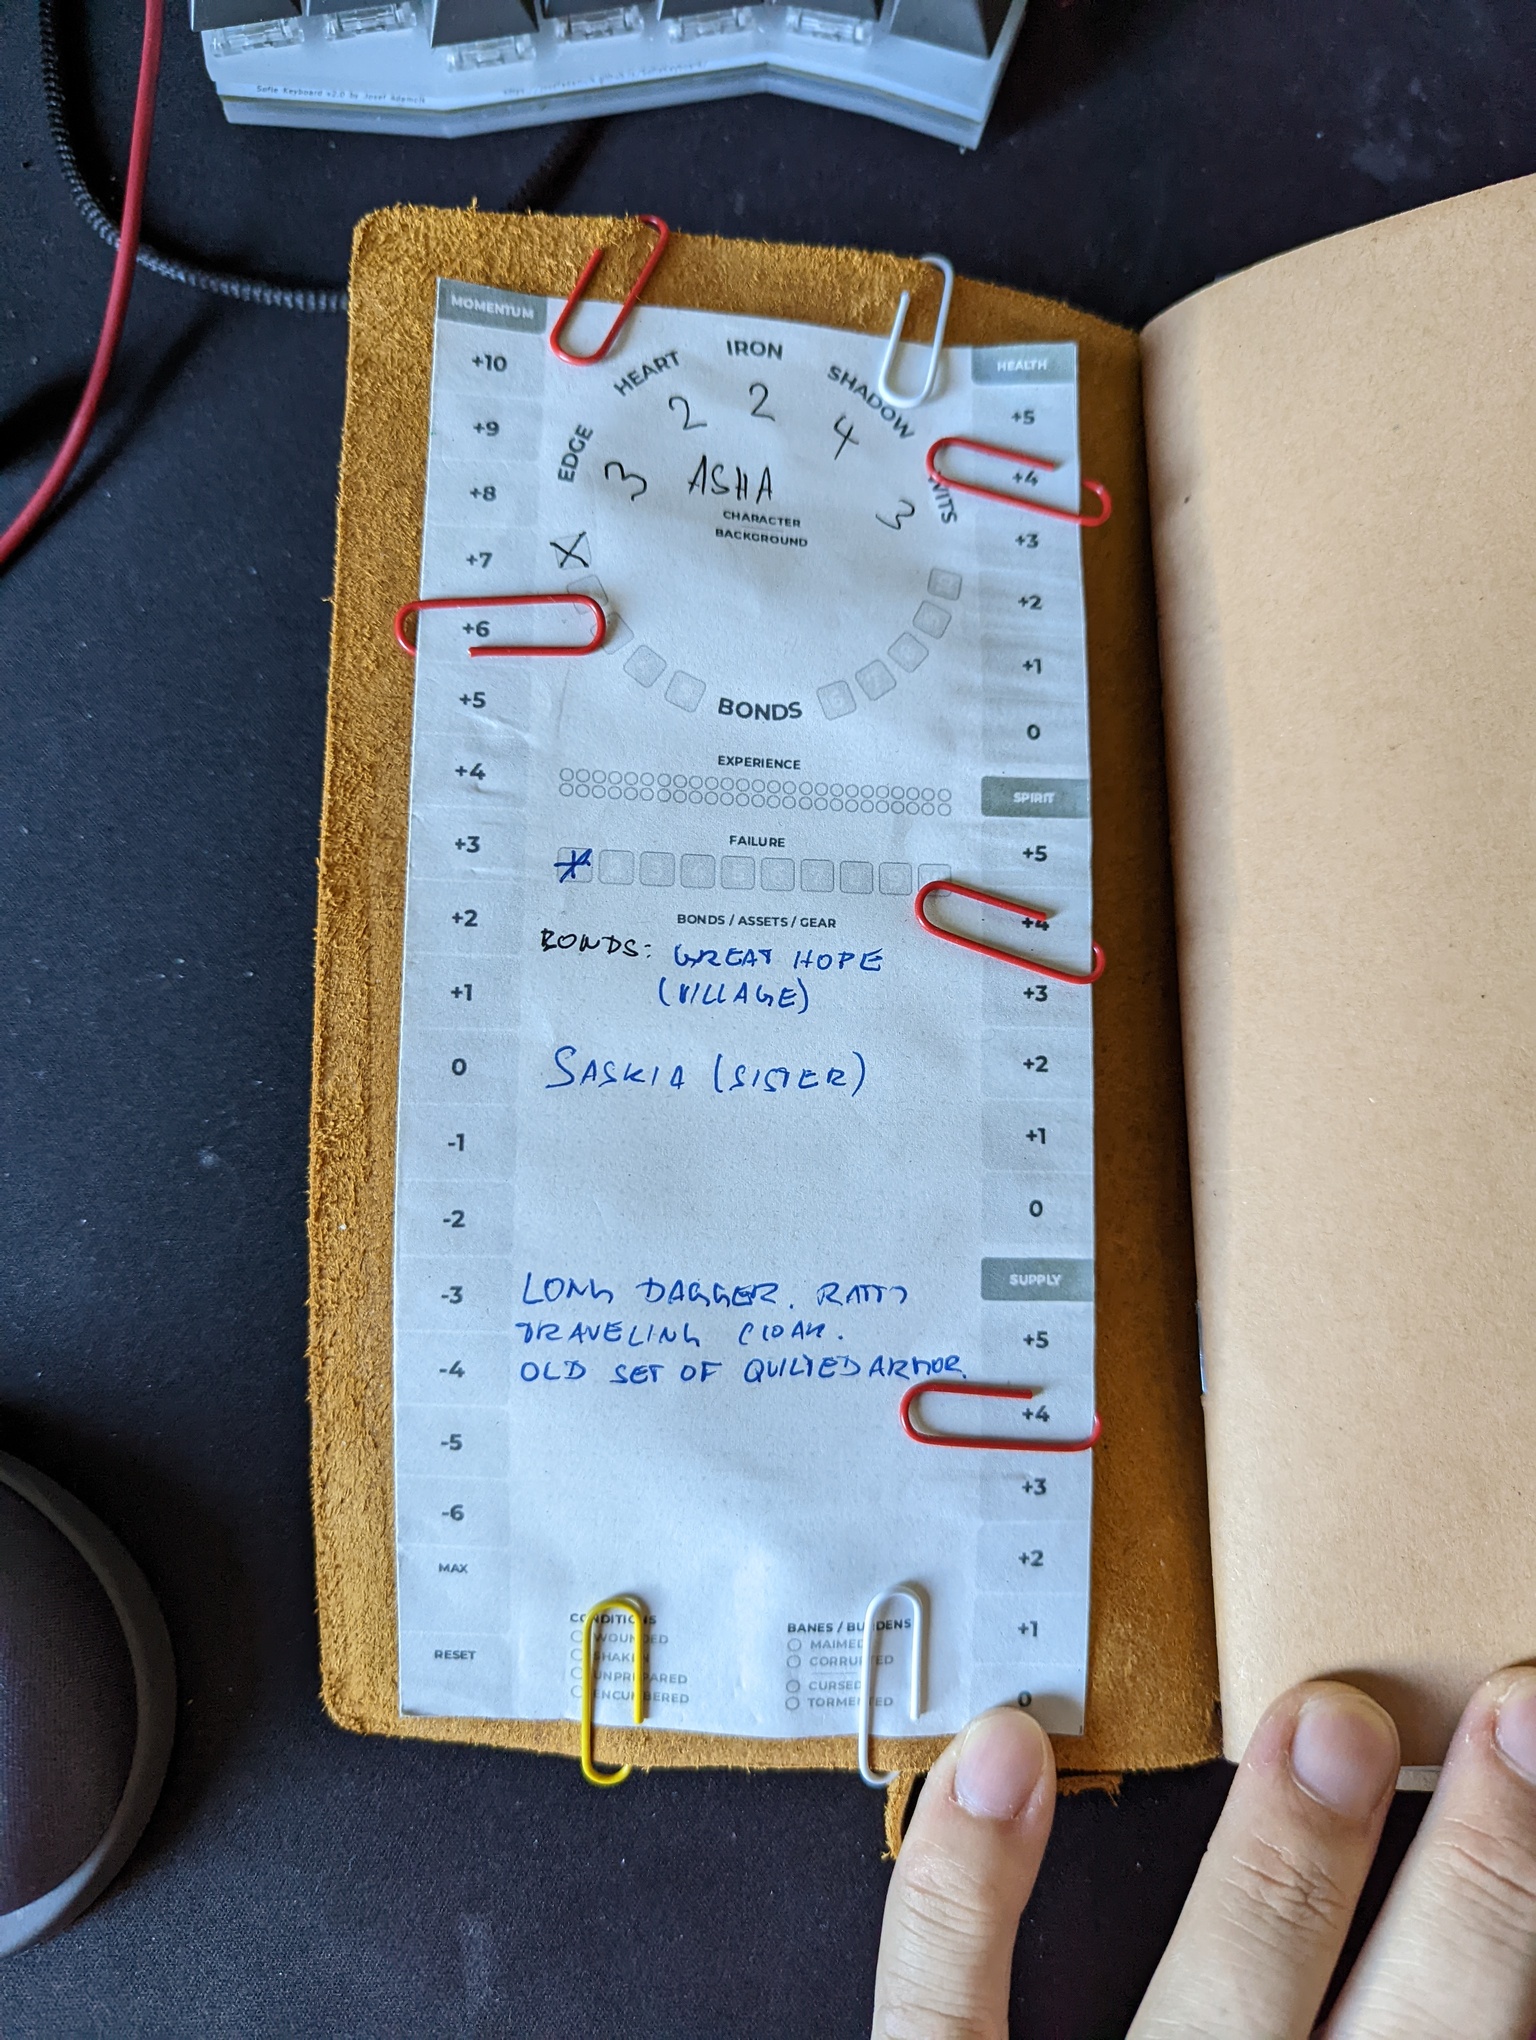 Sofle Keyboard v2.0 by Josef Adamcik
MOMENTUM
+10
+9
+8
+7
+6
+5
+4
+3
+2
+1
0
-1
-2
-3
-4
-5
-6
MAX
RESET
EDGE
HEART
IRON
SHADOW
WITS
3
2
2
4
3
ASHA
CHARACTER
BACKGROUND
BONDS
EXPERIENCE
FAILURE
BONDS / ASSETS / GEAR
BONDS: GREAT HOPE
(VILLAGE)
SASKIA (SISTER)
LONG DAGGER.
TRAVELING CLOAK.
OLD SET OF QUILTED ARMOR.
CONDITIONS
WOUNDED
SHAKEN
UNPREPARED
ENCUMBERED
BANES / BURDENS
MAIMED
CORRUPTED
CURSED
TORMENTED
HEALTH
+5
+4
+3
+2
+1
0
SPIRIT
+5
+4
+3
+2
+1
0
SUPPLY
+5
+4
+3
+2
+1
0